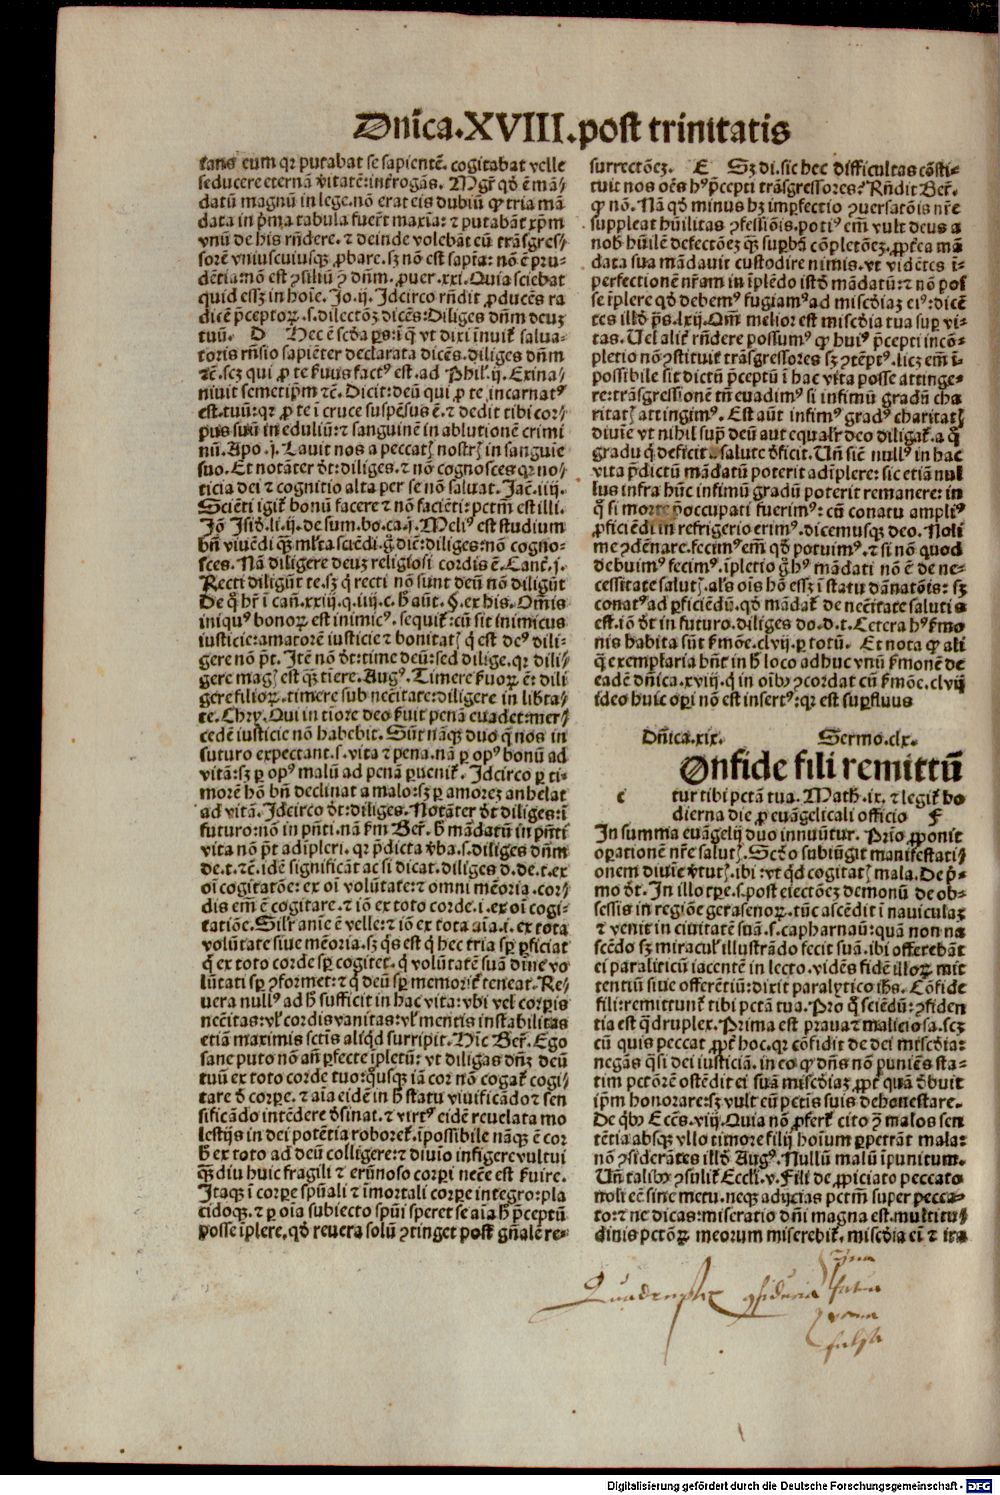 Dnīca.XVIII.post trinitatis
tans eum qr putabat se sapientē. cogitabat velle
seducere eternā v̄itatē: inťrogās. Mgr̄ qd̄ ē mā⸗
datū magnū in lege. nō erat eis dubiū ꝙ tria mā
data in p̄ma tabula fuer̄t maxīa: ⁊ putabāt xp̄m
vnū de his rn̄dere. ⁊ deinde volebāt eū trāsgres⸗
sorē vniuscuiusqꝫ ꝓbare. sꝫ nō est sapīa: nō ē pru⸗
dētia: nō est ꝯsiliū ꝯ dn̄m. ꝓuer. xxi. Quia sciebat
quid essꝫ in hoīe. Jo. ij. Jdcirco rn̄dit ꝓducēs ra
dicē p̄ceptoꝝ .s. dilectōeꝫ dicēs: Diliges dn̄m deuꝫ
tuū. D Hec ē scd̄a ps: ī q̄ vt dixi īnuit᷑ salua⸗
toris rn̄sio sapiēter declarata dicēs. diliges dn̄m
⁊c̄. scꝫ qui ꝓ te ẜuus factꝰ est. ad Phil. ij. Exina⸗
niuit semetip̄m ⁊c̄. Dicit: deū qui ꝓ te incarnatꝰ
est. tuū: qr ꝓ te ī cruce suspēsus ē. ⁊ dedit tibi cor⸗
pus suū in eduliū: ⁊ sanguinē in ablutionē crimi
nū. Apo. j. Lauit nos a peccatꝭ nostrꝭ in sanguie
suo. Et notāter d̄t: diliges. ⁊ nō cognosces qr no⸗
ticia dei ⁊ cognitio alta per se nō saluat. Jac̄. iiij.
Sciēti igit᷑ bonū facere ⁊ nō faciēti: pctm̄ est illi.
Jō Jsid̄. li. ij. de sum. bo. ca. j. Meliꝰ est studium
bn̄ viuēdi qꝫ ml̄ta sciēdi. g̊ diē: diliges: nō cogno⸗
sces. Nā diligere deuꝫ religiosi cordis ē. Cant̄. j.
Recti diligūt te. sꝫ q̇ recti nō sunt deū nō diligūt
De q̊ hr̄ ī cañ. xxiij. q. iiij. c. h̄ aūt. §. ex his. Om̄is
iniquꝰ bonoꝝ est inimicꝰ. sequit᷑: cū sit inimicus
iusticie: amatorē iusticie ⁊ bonitatꝭ q̇ est deꝰ dili⸗
gere nō p̄t. Jtē nō d̄t: time deū: sed dilige. qr dili⸗
gere magꝭ est qꝫ tīere. Augꝰ. Timere ẜuoꝝ ē: dili
gere filioꝝ. timere sub nec̄itate: diligere in lib̄ta⸗
te. Chry. Qui in tīore deo ẜuit penā euadet: mer⸗
cedē iusticie nō habebit. Sūt nāqꝫ duo q̄ nos in
futuro expectant .s. vita ⁊ pena. nā ꝑ opꝰ bonū ad
vitā: sꝫ ꝑ opꝰ malū ad penā ꝑuenit᷑. Jdcirco ꝑ ti⸗
morē hō bn̄ declinat a malo: sꝫ ꝑ amoreꝫ anhelat
ad vitā. Jdcirco d̄t: diliges. Notāter d̄t diliges: ī
futuro: nō in pn̄ti. nā ẜm Ber̄. h̄ mādatū in pn̄ti
vita nō p̄t adīpleri. qr p̄dicta v̄ba .s. diliges dn̄m
de. t. ⁊c̄. idē significāt ac si dicat. diliges d. de. t. ex
oī cogitatōe: ex oī volūtate: ⁊ omni mēoria. cor⸗
dis em̄ ē cogitare. ⁊ iō ex toto corde. i. ex oī cogi⸗
tatiōe. Sil̄r anīe ē velle: ⁊ iō ex tota aīa. i. ex tota
volūtate siue mēoria. sꝫ qs̄ est q̇ hec tria sp̄ ꝑficiat
q̇ ex toto corde sp̄ cogitet. q̇ volūtatē suā dīne vo
lūtati sp̄ ꝯformet: ⁊ q̇ deū sp̄ memorit᷑ teneat. Re⸗
uera nullꝰ ad h̄ sufficit in hac vita: vbi vel corꝑis
nec̄itas: vl̄ cordis vanitas: vl̄ mentis instabilitas
etiā maximis sctīs aliqd̄ surripit. Hīc Ber̄. Ego
sane puto nō añ ꝑfecte īpletū: vt diligas dn̄ꝫ deū
tuū ex toto corde tuo: q̊usqꝫ iā cor nō cogat᷑ cogi⸗
tare d̄ corꝑe. ⁊ aīa eidē in h̄ statu viuificādo ⁊ sen
sificādo intēdere d̄sinat. ⁊ virtꝰ eidē reuelata mo
lestijs in dei potētia roboret᷑. īpossibile nāqꝫ ē cor
h̄ ex toto ad deū colligere: ⁊ diuio infigere vultui
qꝫdiu huic fragili ⁊ erūnoso corꝑi necc̄e est ẜuire.
Jtaqꝫ ī corꝑe spūali ⁊ īmortali corꝑe integro: pla
cidoqꝫ. ⁊ ꝑ oīa subiecto spūi speret se aīa h̄ p̄ceptū
posse īplere. qd̄ reuera solū ꝯtinget post gn̄alē re⸗
surrectōeꝫ. E Sꝫ di. sic hec difficultas cōsti⸗
tuit nos oēs hꝰ p̄cepti trāsgressores? Rn̄dit Ber̄.
ꝙ nō. Nā qd̄ minus hꝫ imꝑfectio ꝯuersatōis nr̄e
suppleat hūilitas ꝯfessiōis. potiꝰ em̄ vult deus a
nob̄ hūilē defectōeꝫ qꝫ suꝑbā cōpletōeꝫ. ꝓpt̄ea mā
data sua mādauit custodire nimis. vt vidētes ī⸗
perfectionē nr̄am in īplēdo istd̄ mādatū: ⁊ nō pos
se īplere qd̄ debemꝰ fugiamꝰ ad misc̄diaꝫ eiꝰ: dicē
tes illd̄ ps̄. lxij. Qm̄ melior est misc̄dia tua suꝑ vi⸗
tas. Uel alit᷑ rn̄dere possumꝰ ꝙ huiꝰ p̄cepti incō⸗
pletio nō ꝯstituit trāsgressores sꝫ ꝯtēptꝰ. licꝫ em̄ ī⸗
possibile sit dictū p̄ceptū ī hac vita posse attinge⸗
re: trāsgressionē tn̄ euadimꝰ si infimū gradū cha
ritatꝭ attingimꝰ. Est aūt infimꝰ gradꝰ charitatꝭ
diuīe vt nihil sup̄ deū aut equalr̄ deo diligat᷑. a q̊
gradu q̇ deficit. a salute d̄ficit. Uñ sic nullꝰ in hac
vita p̄dictū mādatū poterit adīplere: sic etiā nul
lus infra hūc infimū gradū poterit remanere: in
q̊ si morte p̄occupati fuerimꝰ: cū conatu ampliꝰ
ꝓficiēdi in refrigerio erimꝰ. dicemusqꝫ deo. Noli
me ꝯdēnare. fecimꝰ em̄ qd̄ potuimꝰ. ⁊ si nō quod
debuimꝰ fecimꝰ. īpletio g̊ hꝰ mādati nō ē de ne⸗
cessitate salutꝭ. als̄ oīs hō essꝫ ī statu dānatōis: sꝫ
conatꝰ ad ꝑficiēdū. qd̄ mādat᷑ de nec̄itate salutis
est. iō d̄t in futuro. diliges do. d. t. Cetera hꝰ ẜmo
nis habita sūt ẜmōe. clvij. ꝑ totū. Et nota ꝙ ali
q̄ exemplaria hn̄t in h̄ loco adhuc vnū ẜmonē de
eadē dn̄ica. xviij. q̇ in oībꝰ ꝯcordat cū ẜmōe. clvij
ideo huic oꝑi nō est insertꝰ: qr est suꝑfluus
Dn̄ica. xix. Sermo. clx.
Onfide fili remittū
c tur tibi pctā tua. Math̄. ix. ⁊ legit᷑ ho
dierna die ꝓ euāgelicali officio F
In summa euāgelij duo innuūtur. Prīo ꝓponit
oꝑationē nr̄e salutꝭ. Scd̄o subiūgit manifestati⸗
onem diuīe v̄tutꝭ. ibi: vt qd̄ cogitatꝭ mala. De p̄⸗
mo d̄t. Jn illo tꝑe .s. post eiectōeꝫ demonū de ob⸗
sessis in regiōe gerasenoꝝ. tūc ascēdit ī nauiculaꝫ
⁊ venit in ciuitatē suā .s. capharnaū: quā non na
scēdo sꝫ miracul᷑ illustrādo fecit suā. ibi offerebāt
ei paraliticū iacentē in lecto. vidēs fidē illoꝝ mit
tentiū siue offerētiū: dixit paralytico ih̄s. Cōfide
fili: remittunt᷑ tibi pctā tua. Pro q̊ sciēdū: ꝯfiden
tia est q̄druplex. Prima est praua ⁊ maliciosa. scꝫ
cū quis peccat ꝓpt̄ hoc. qr cōfidit de dei misc̄dia:
negās q̄si dei iusticiā. in eo ꝙ dn̄s nō puniēs sta⸗
tim pctōrē ostēdit ei suā misc̄diaꝫ ꝓpt̄ quā d̄buit
ip̄m honorare: sꝫ vult eū pctīs suis dehonestare.
De qb̄ꝰ Ecc̄s. viij. Quia nō ꝓfert᷑ cito ꝯ malos sen
tētia absqꝫ vllo timore filij hoīum ꝑpetrāt mala:
nō ꝯsiderātes illd̄ Augꝰ. Nullū malū īpunitum.
Uñ talibꝰ ꝯsulit᷑ Eccl̄i. v. Fili de ꝓpiciato peccato
noli eē sine metu. neqꝫ adijcias pctm̄ super pecca⸗
to: ⁊ ne dicas: miseratio dn̄i magna est. multitu⸗
dinis pctōꝝ meorum miserebit᷑. misc̄dia em̄ ⁊ ira
Quadruplex ꝯfidencia
vana
falsa
Digitalisierung gefördert durch die Deutsche Forschungsgemeinschaft - DFG